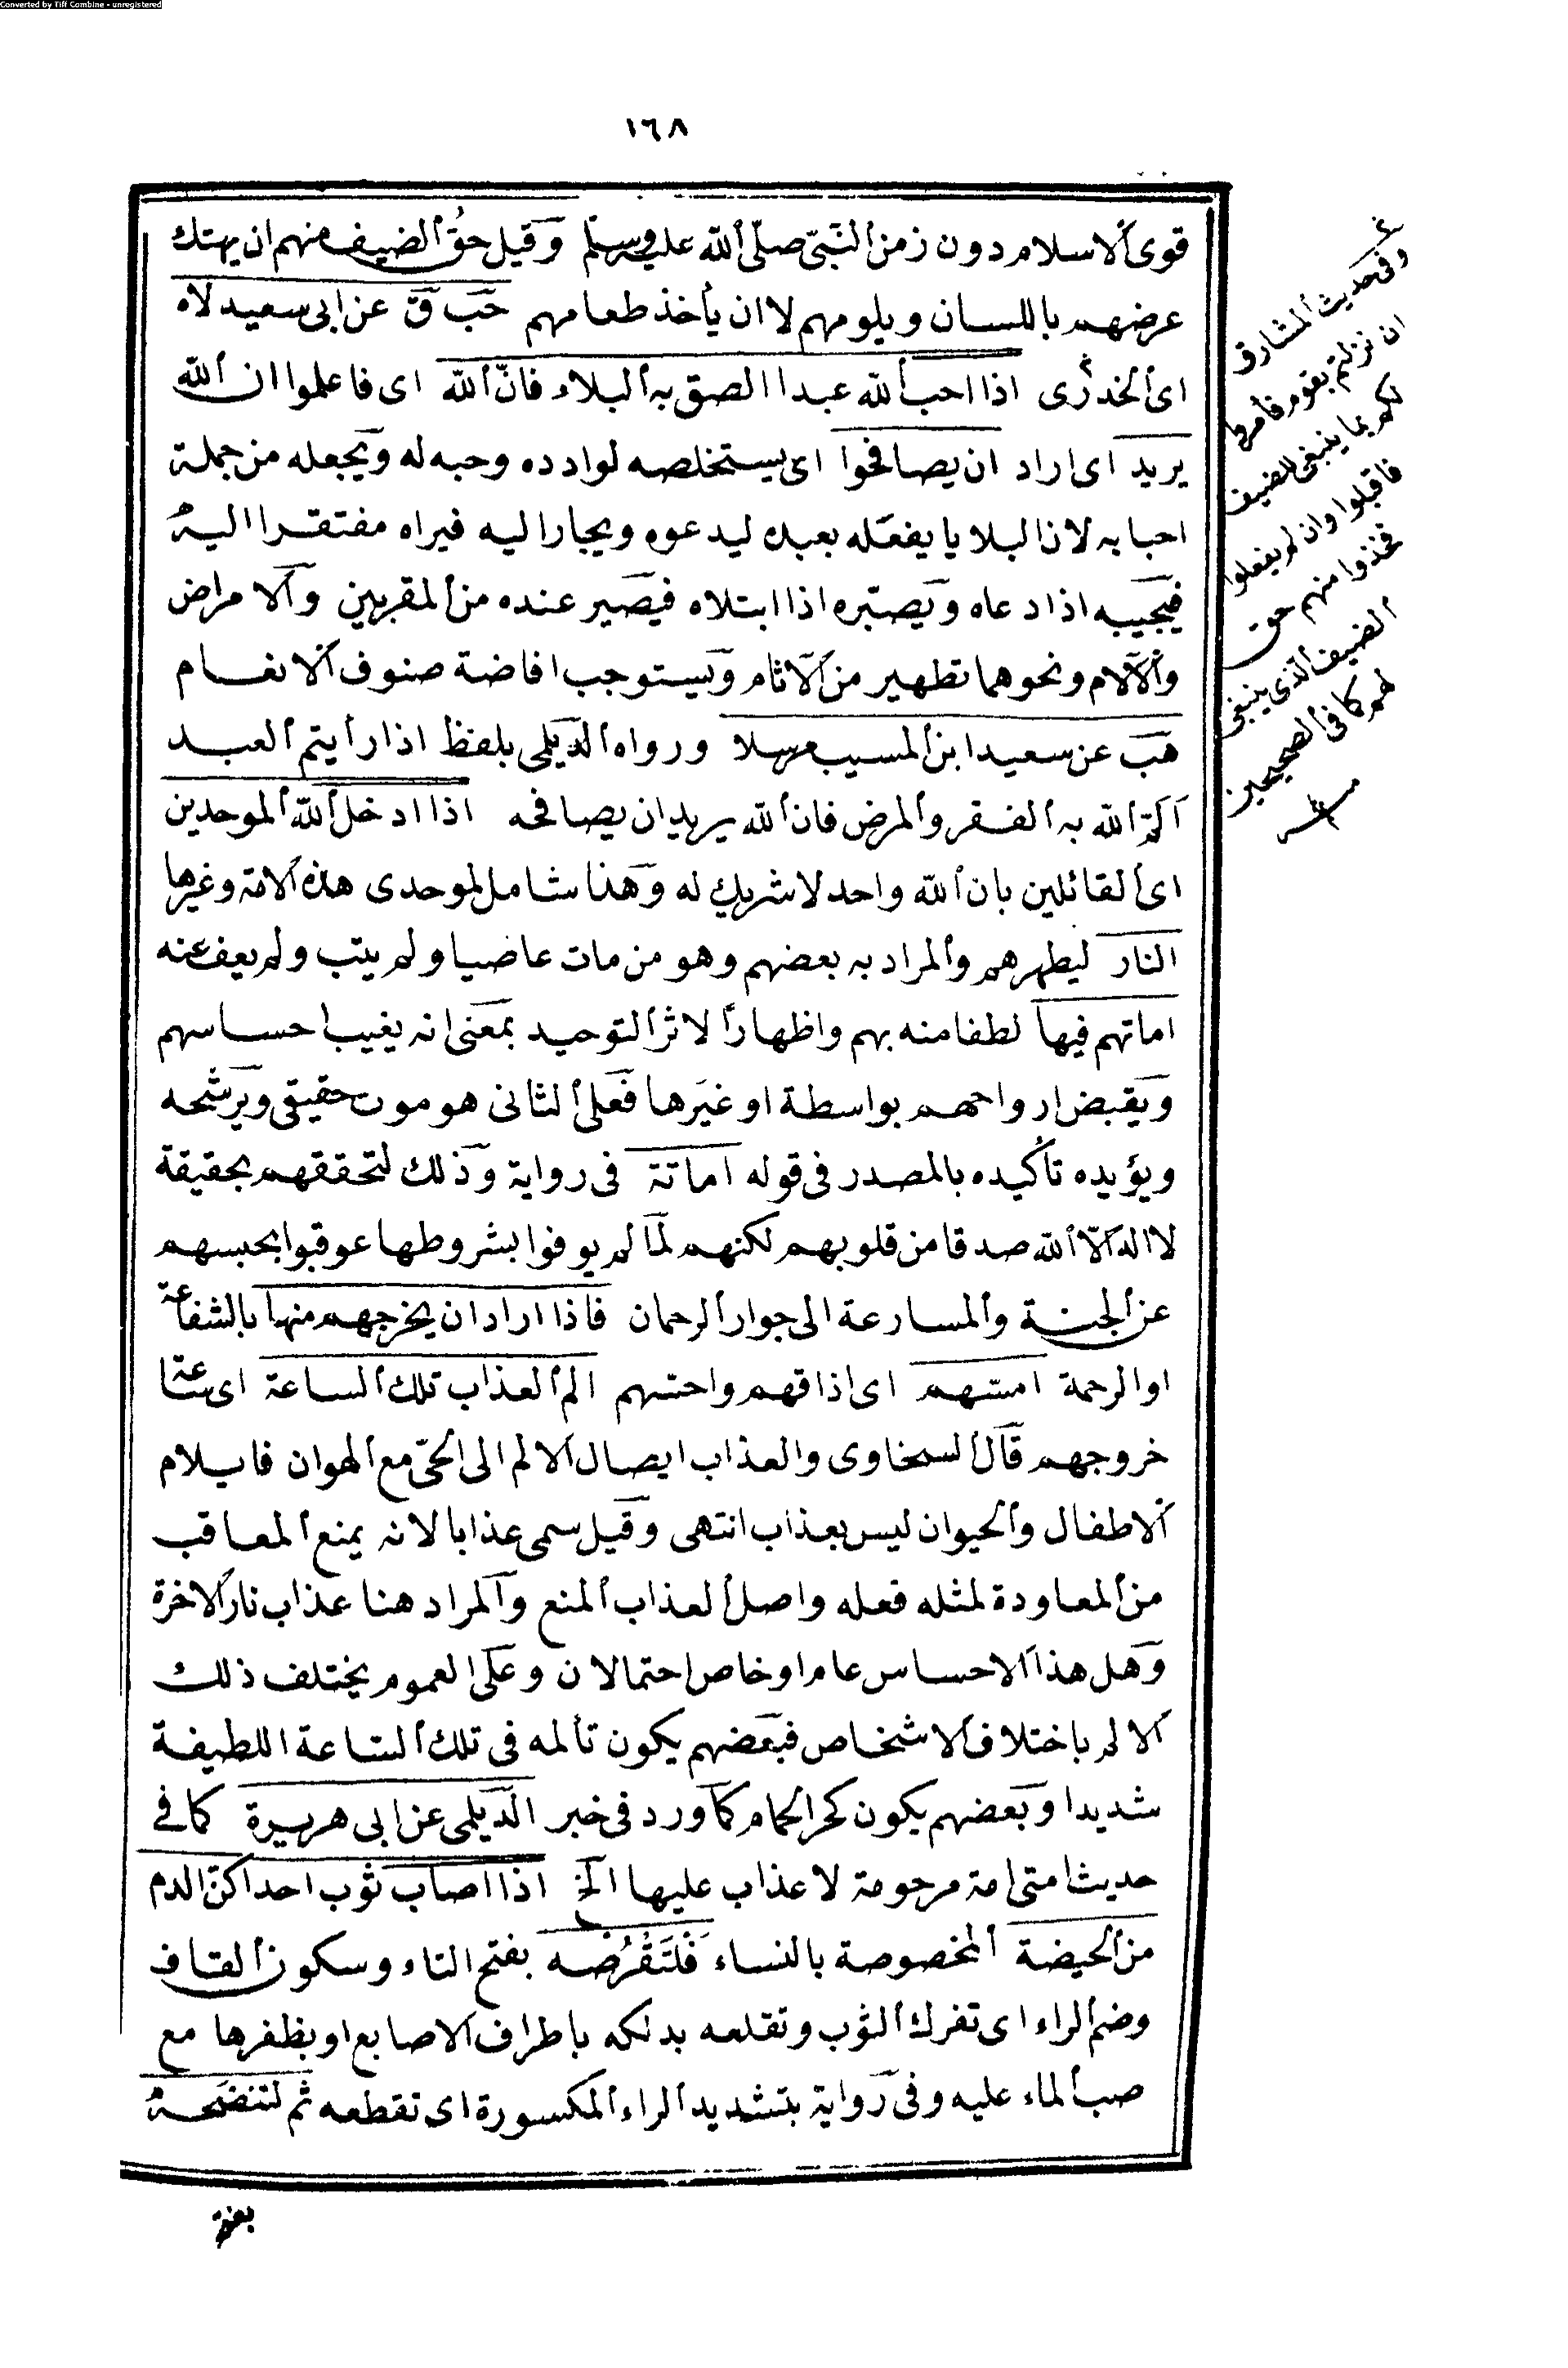 Converted by Tiff Combine - unregistered
١٦٨
قوى الاسلام دون زمن النبى صلى الله عليه وسلم وقيل حق الضيف منهم ان يهتك
عرضهم باللسان ويلومهم لا ان يأخذ طعامهم حب ق عن ابى سعيد لاه
اى الخدرى اذا احب الله عبدا الصق به البلاء فان الله اى فاعلموا ان الله
يريد اى اراد ان يصافحوا اى يستخلصه لوادده وحبه له ويجعله من جملة
احبابه لان البلايا يفعله بعبده ليدعوه ويجار اليه فيراه مفتقرا اليه
فيجيبه اذا دعاه ويصبره اذا ابتلاه فيصير عنده من المقربين والامراض
والآلام ونحوهما تطهير من الآثام ويستوجب افاضة صنوف الانعام
هب عن سعيد ابن المسيب مرسلا ورواه الديلمى بلفظ اذا رأيتم العبد
الم الله به الفقر والمرض فان الله يريد ان يصافحه اذا ادخل الله الموحدين
اى القائلين بان الله واحد لا شريك له وهذا شامل لموحدى هذه الامة وغيرها
النار ليطهرهم والمراد به بعضهم وهو من مات عاصيا ولم يتب ولم يعف عنه
اماتهم فيها لطفا منه بهم واظهارا لاثر التوحيد بمعنى انه يغيب احساسهم
ويقبض ارواحهم بواسطة او غيرها فعلى الثانى هو موت حقيقى ويرشحه
ويؤيده تأكيده بالمصدر فى قوله اماتة فى رواية وذلك لتحققهم بحقيقة
لا اله الا الله صدقا من قلوبهم لكنهم لما لم يوفوا بشروطها عوقبوا بحبسهم
عن الجنة والمسارعة الى جوار الرحمان فاذا اراد ان يخرجهم منها بالشفاعة
او الرحمة امسهم اى اذاقهم واحسهم الم العذاب تلك الساعة اى ساعة
خروجهم قال السخاوى والعذاب ايصال الالم الى الحى مع الهوان فايلام
الاطفال والحيوان ليس بعذاب انتهى وقيل سمى عذابا لانه يمنع المعاقب
من المعاودة لمثله فعله واصل العذاب المنع والمراد هنا عذاب نار الاخرة
وهل هذا الاحساس عام او خاص احتمالان وعلى العموم يختلف ذلك
الالم باختلاف الاشخاص فبعضهم يكون تألمه فى تلك الساعة اللطيفة
شديدا وبعضهم يكون كحر الحمام كما ورد فى خبر الديلمى عن ابى هريرة كما فى
حديث امتى امة مرحومة لا عذاب عليها الخ اذا اصاب ثوب احداكن الدم
من الحيضة المخصوصة بالنساء فَلْتَقْرُصْه بفتح التاء وسكون القاف
وضم الراء اى تفرك الثوب وتقلعه بدلكه باطراف الاصابع او بظفرها مع
صب الماء عليه وفى رواية بتشديد الراء المكسورة اى تقطعه ثم لتنضحه
وفى حديث المشارق
ان نزلتم بقوم فأمروا
لكم بما ينبغى للضيف
فاقبلوا وان لم يفعلوا
فخذوا منهم حق
الضيف الذى ينبغى
لهم كما فى الصحيحين